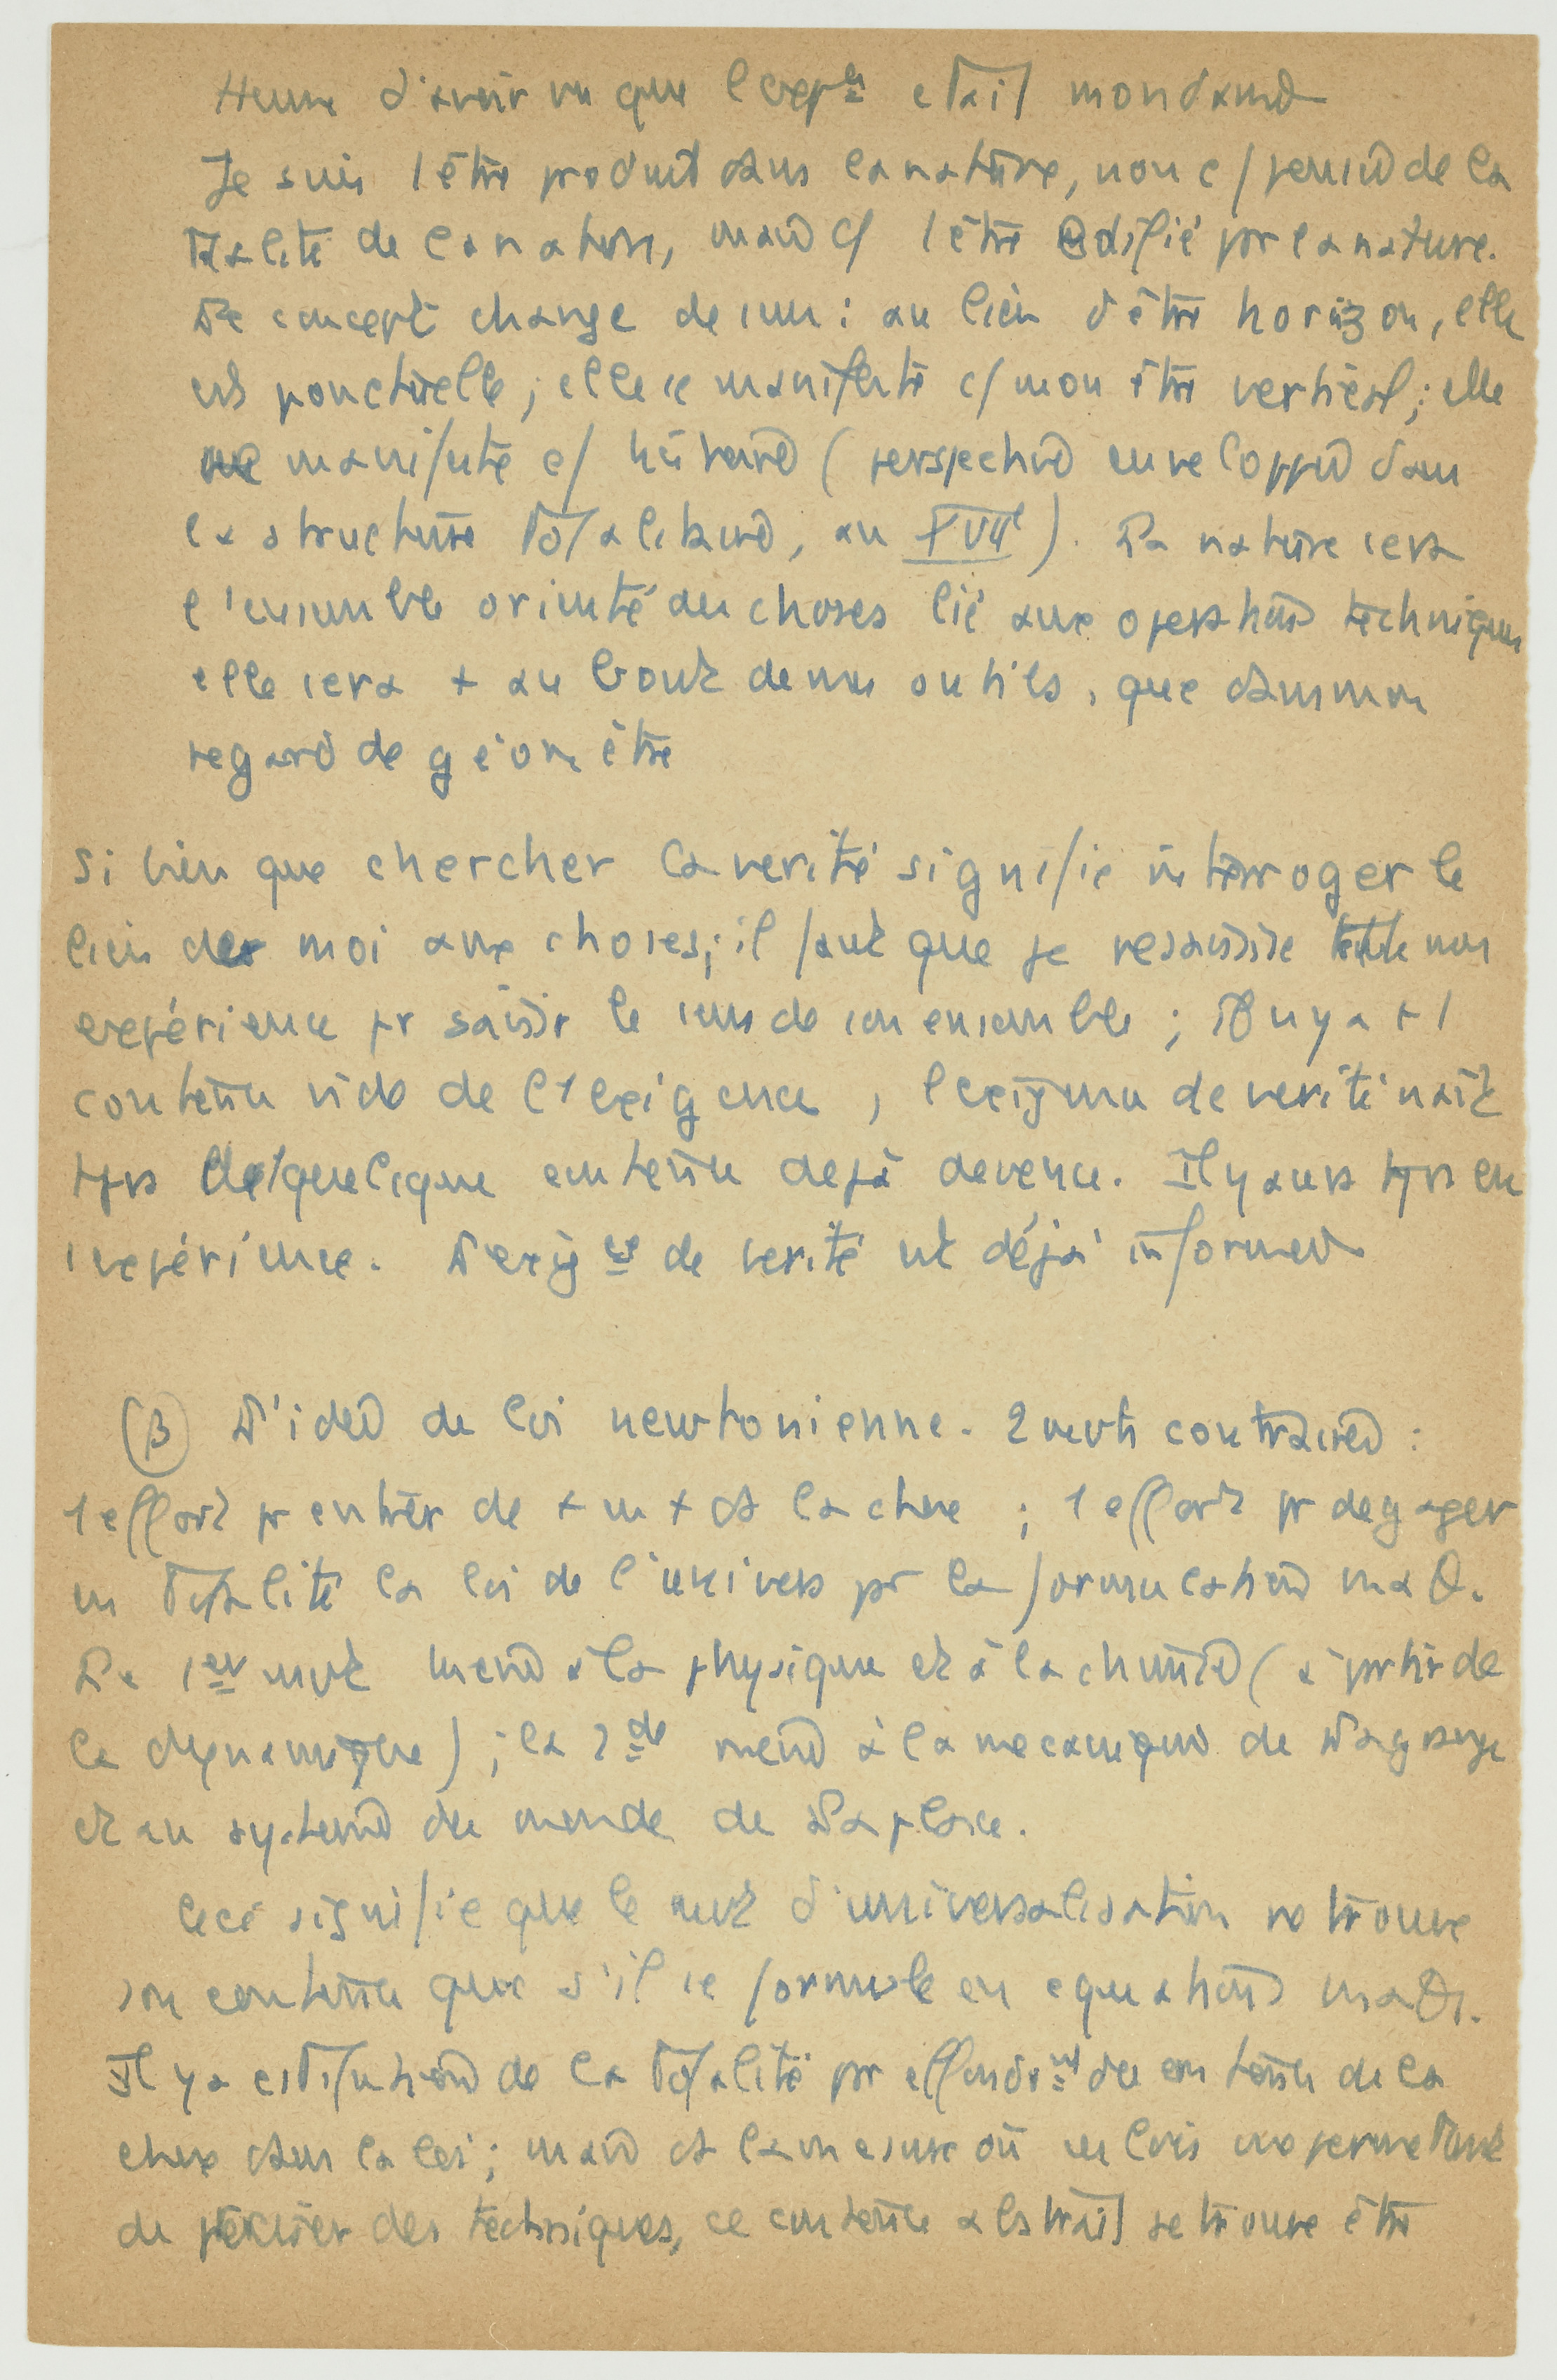 Hume d'avoir vu que l'exp^ce était mondaine
Je suis 1 être produit dans la nature, non c/ pensée de la
totalité de la nature, mais c/ 1 être édifié par la nature.
Le concept change de sens : au lieu d'être horizon, elle
est ponctuelle ; elle se manifeste c/ mon être vertical ; elle
se manifeste c/ histoire (perspective enveloppée dans
la structure totalitaire, au XVIIe). La nature sera
l'ensemble orienté des choses lié aux opérations techniques
elle sera + au bout de mes outils, que dans mon
regard de géomètre
Si bien que chercher la vérité signifie interroger le
lien de moi aux choses ; il faut que je ressaisisse toute mon
expérience pr saisir le sens de son ensemble ; Il n y a p 1
contenu vide de l'exigence, l'exigence de vérité naît
tjrs de quelque contenu déjà devenu. Il y aura tjrs eu
1 expérience. L'exig^ce de vérité est déjà informée
(β) L'idée de loi newtonienne. 2 mvts contraires :
1 effort pr entrer de + en + ds la chose ; 1 effort pr dégager
en totalité la loi de l'univers pr la formulation maθ.
Le 1er mvt mène à la physique et à la chimie (à partir de
la dynamique) ; la 2de mène à la mécanique de Lagrange
et au système du monde de Laplace.
Ceci signifie que le mvt d'universalisation ne trouve
son contenu que s'il se formule en équations maθ.
Il y a constitution de la totalité par effondr^nt du contenu de la
chose dans la loi ; mais ds la mesure où ces lois me permettent
de préciser des techniques, ce contenu abstrait se trouve être